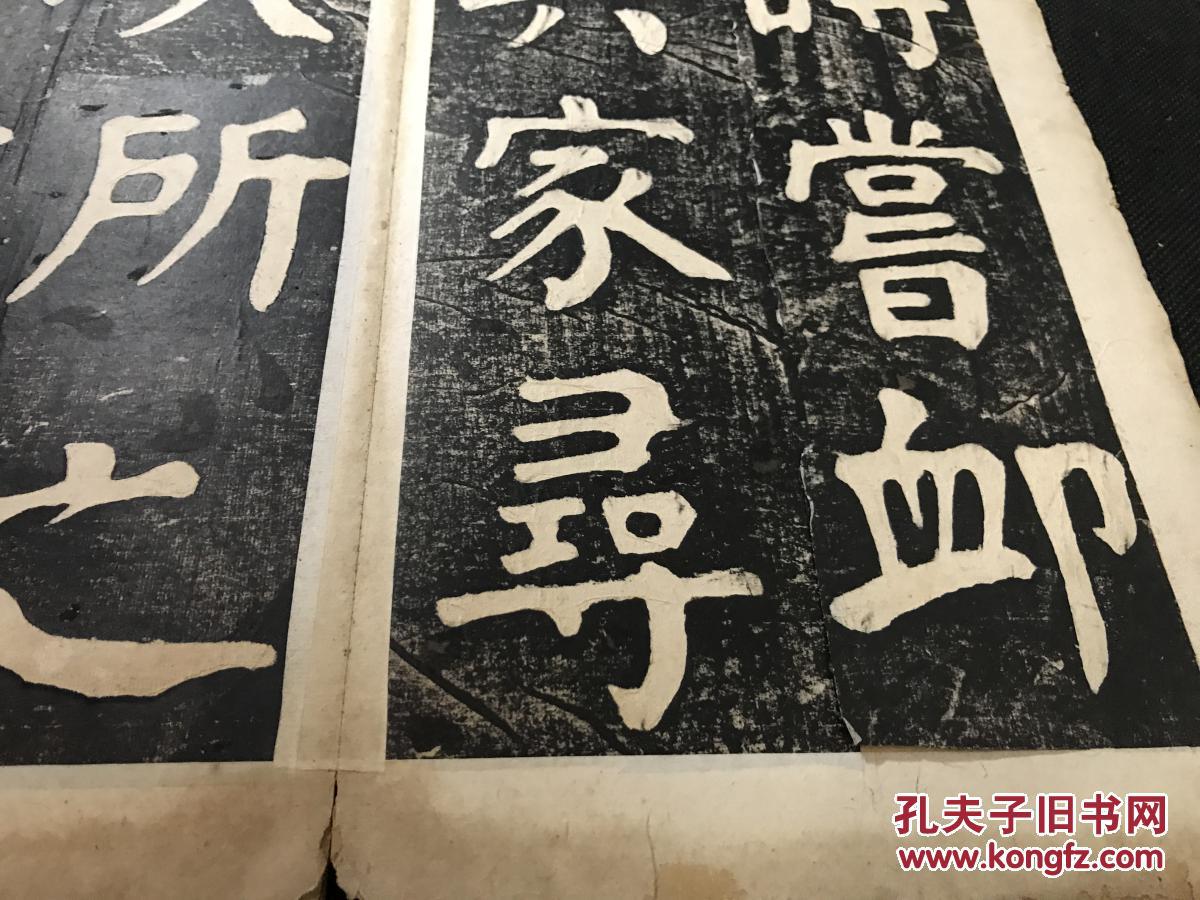 嘗卹
家尋
所之
孔夫子旧书网
www.kongfz.com